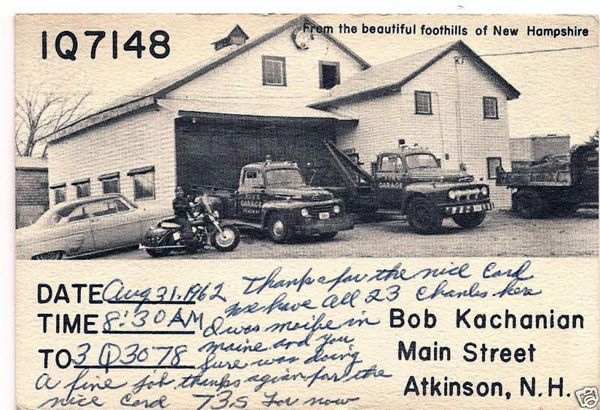 From the beautiful foothills of New Hampshire
1Q7148
GARAGE
GARAGE
DATE Aug 31, 1962
TIME 8:30 AM
TO 3Q3078
Thanks for the nice Card
we have all 23 Chanles here
I was moibe in
maine and you
sure was doing
a fine job thanks agian for the
nice Card 73s For now
Bob Kachanian
Main Street
Atkinson, N.H.